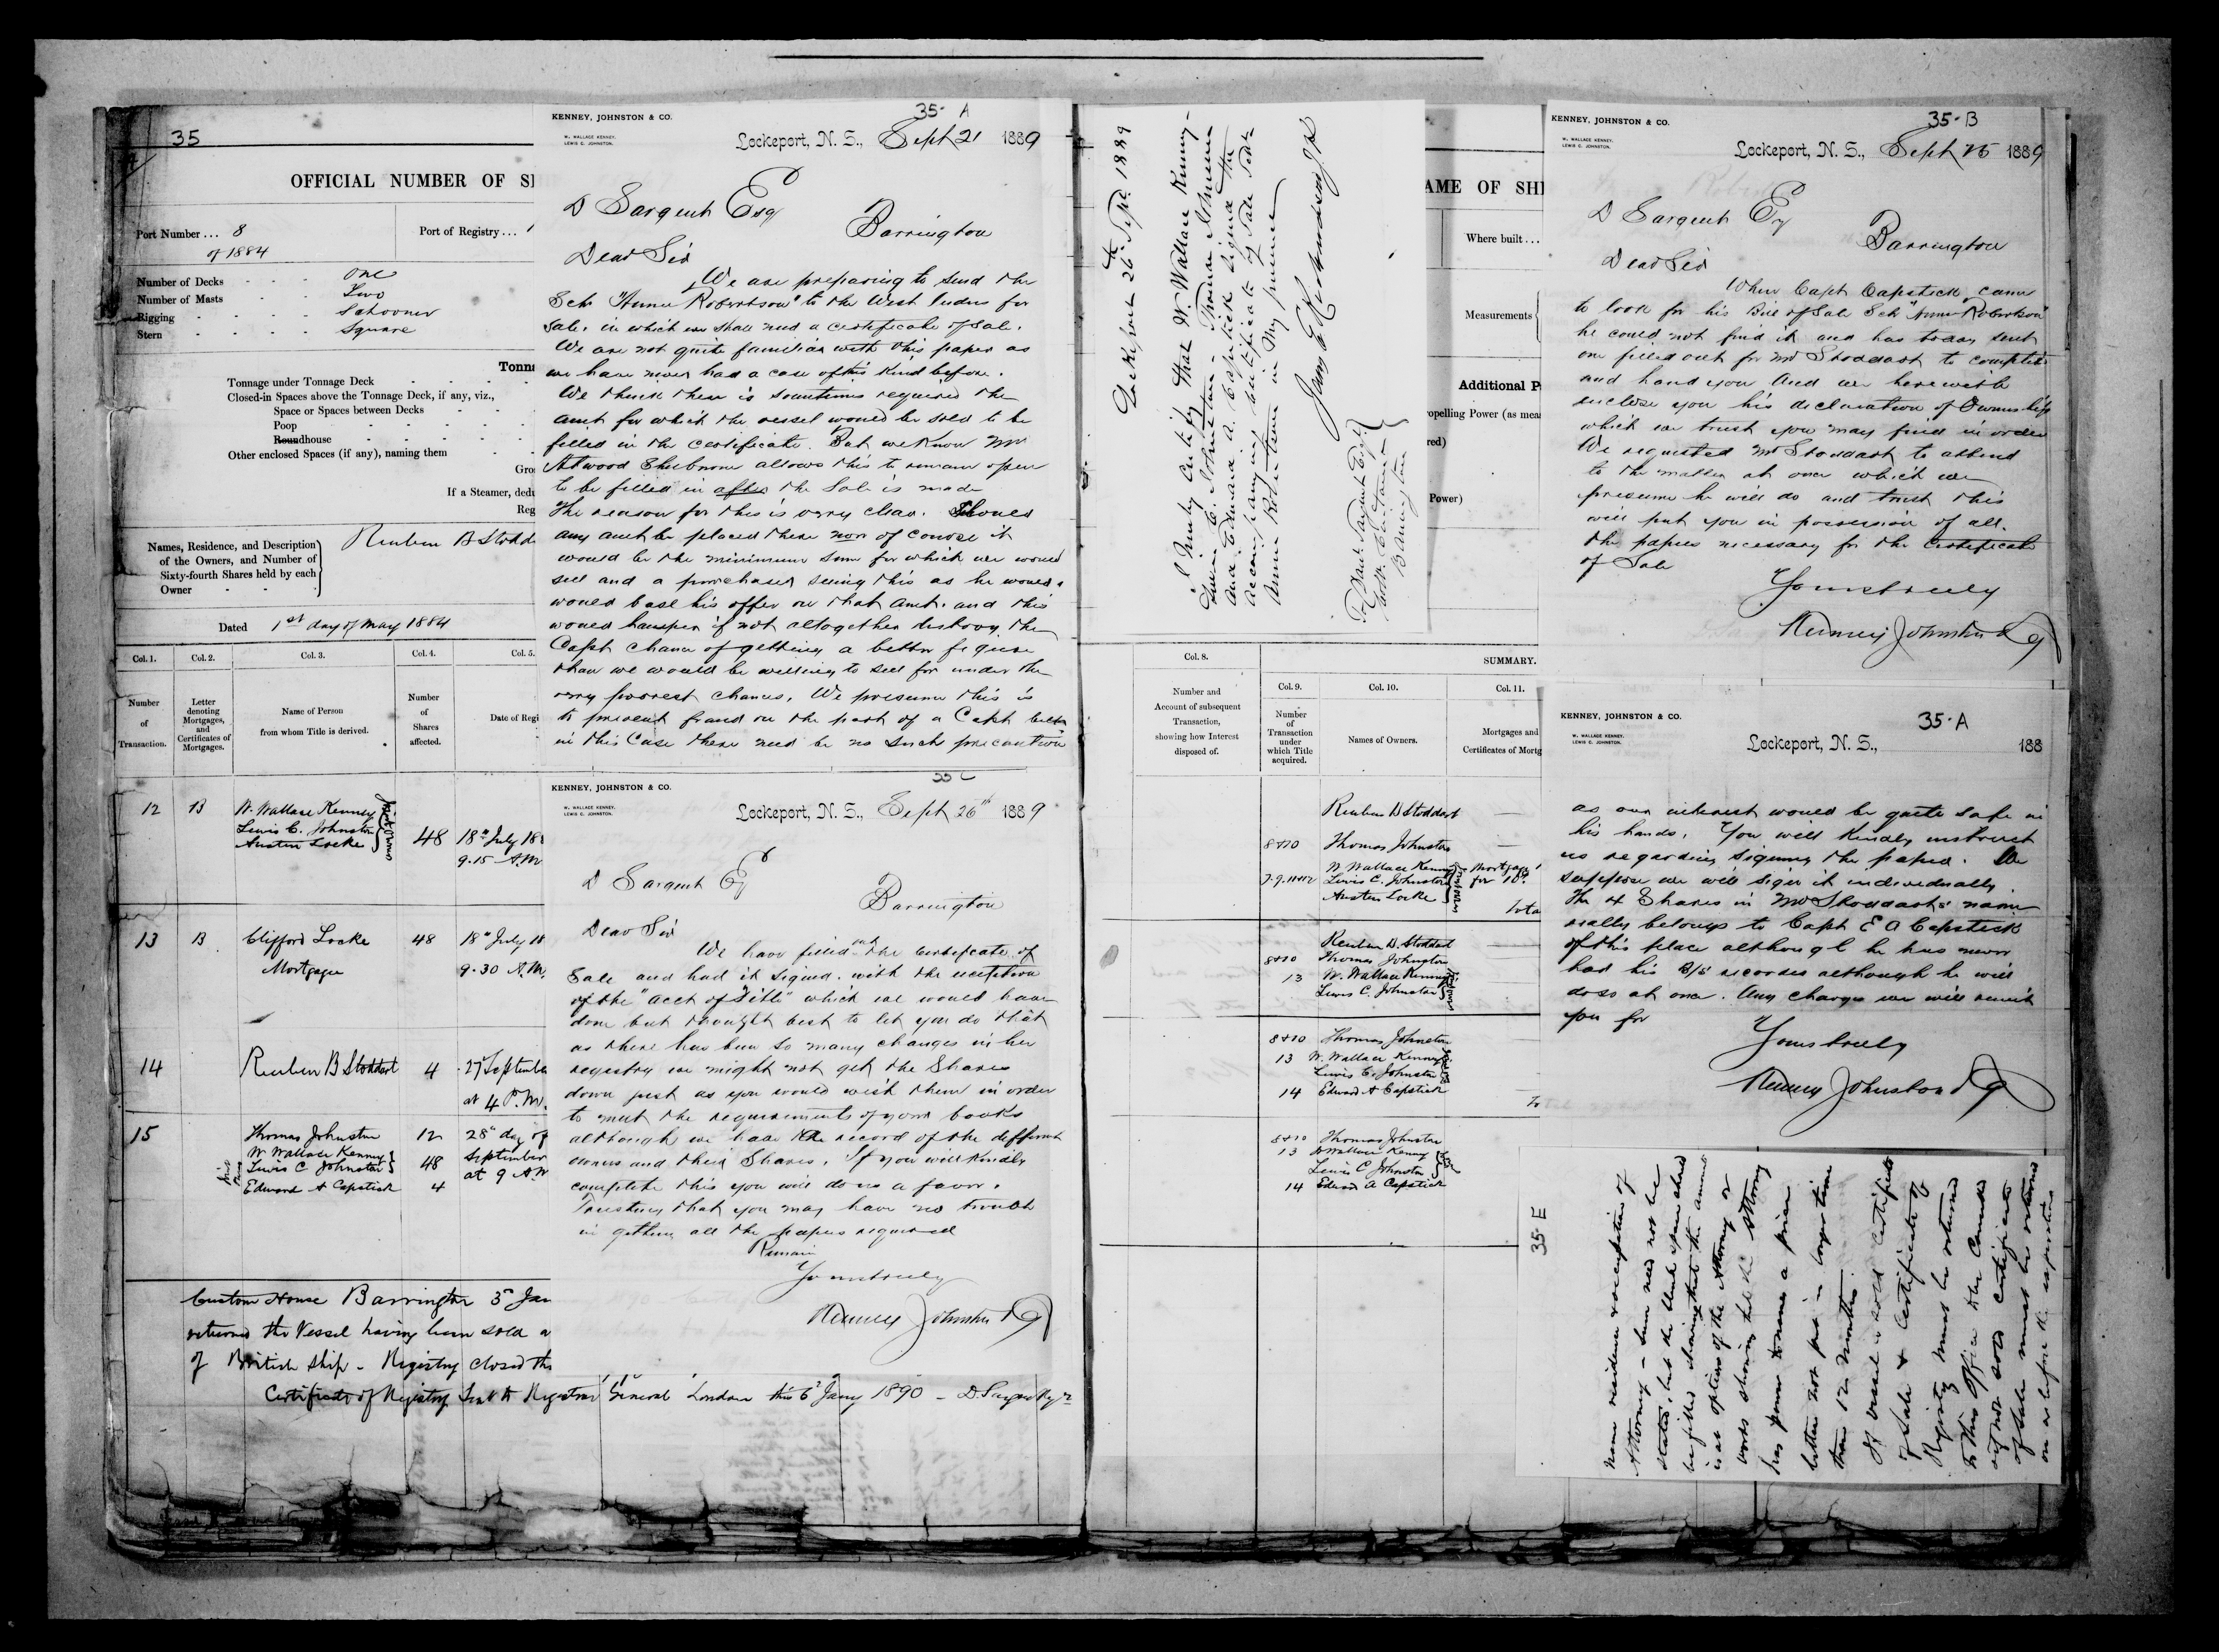 35
OFFICIAL NUMBER OF SH
Port Number ... 8
of 1884
Port of Registry ...
Number of Decks
One
Number of Masts
Two
Rigging
Schooner
Stern
Square
Tonn
Tonnage under Tonnage Deck
Closed-in Spaces above the Tonnage Deck, if any, viz.,
Space or Spaces between Decks
Poop
Roundhouse
Other enclosed Spaces (if any), naming them
Gro
If a Steamer, dedu
Reg
Names, Residence, and Description
of the Owners, and Number of
Sixty-fourth Shares held by each
Owner
Reuben B Stodd
Dated 1st day of May 1884
Col. 1. Col. 2. Col. 3. Col. 4. Col. 5.
Number of Transaction.
Letter denoting Mortgages, and Certificates of Mortgages.
Name of Person from whom Title is derived.
Number of Shares affected.
Date of Regi
12 B W. Wallace Kenney
Lewis C. Johnston
Austin Locke
Joint Owners
48 18th July 188
9.15 A.M
13 B Clifford Locke
Mortgagee
48 18th July 18
9.30 A.M.
14 Reuben B Stoddart 4 27 Septembe
at 4 P.M.
15 Thomas Johnston 12 28th day of
W Wallace Kenney
Lewis C Johnston 48 September
Edward A Capstick 4 at 9 A.M
Custom House Barrington 3rd Jan
returned the Vessel having been sold a
of British Ship - Registry closed th
Certificate of Registry Sent to Registrar General London this 6th Jany 1890 - D Sargent Regr
35-A
KENNEY, JOHNSTON & CO.
W. WALLACE KENNEY.
LEWIS C. JOHNSTON.
Lockeport, N. S., Sept 21 1889
D Sargent Esq
Barrington
Dear Sir
We are preparing to send the
Sch "Annie Robertson" to the West Indies for
sale, in which we shall need a certificate of sale.
We are not quite familiar with this paper as
we have never had a case of this kind before.
We think there is sometimes required the
amt for which the vessel would be sold to be
filled in the certificate. But we know Mr
Atwood Shelburne allows this to remain open
to be filled in after the sale is made
The reason for this is very clear. Should
any amt be placed there now of course it
would be the minimum sum for which we would
sell and a purchaser seeing this as he would
would base his offer on that amt. and this
would hamper if not altogether destroy the
Capt chance of getting a better figure
than we would be willing to sell for under the
very poorest chances. We presume this is
to prevent fraud on the part of a Capt but
in this Case there need be no such precaution
35 C
KENNEY, JOHNSTON & CO.
W. WALLACE KENNEY.
LEWIS C. JOHNSTON.
Lockeport, N. S., Sept 26th 1889
D Sargent Esq
Barrington
Dear Sir
We have filled out the Certificate of
Sale and had it signed. with the exception
of the "acct of Title" which we would have
done but thought best to let you do that
as there has been so many changes in her
registry we might not get the Shares
down just as you would wish them in order
to meet the requirements of your books
although we have the record of the different
owners and their Shares. If you will kindly
complete this you will do us a favor.
Trusting that you may have no trouble
in getting all the papers required
Remain
Yours truly
Kenney Johnston & Co
Lockeport 26th Sept. 1889
I hereby certify that W. Wallace Kenney
Lewis C. Johnston - Thomas Johnston
and Edward A. Capstick signed the
accompanying certificate of Sale Sch
Annie Robertson in my presence
To
Barrington
AME OF SHI
Where built ...
Measurements
Additional P
ropelling Power (as mea
red)
Power)
Col. 8.
Number and Account of subsequent Transaction, showing how Interest disposed of.
SUMMARY.
Col. 9. Col. 10. Col. 11.
Number of Transaction under which Title acquired.
Names of Owners.
Mortgages and
Certificates of Mortg
Reuben B Stoddart
8+10 Thomas Johnston
7.9.11+12 W Wallace Kenney
Lewis C. Johnston
Austin Locke
Mortgage
for
Tota
Reuben B. Stoddart
8+10 Thomas Johnston
13 W. Wallace Kenney
Lewis C. Johnston
8+10 Thomas Johnston
13 W. Wallace Kenney
Lewis C. Johnston
14 Edward A Capstick
8+10 Thomas Johnston
13 W Wallace Kenney
Lewis C Johnston
14 Edward A Capstick
35-B
KENNEY, JOHNSTON & CO.
W. WALLACE KENNEY.
LEWIS C. JOHNSTON.
Lockeport, N. S., Sept 25 1889
D Sargent Esq
Barrington
Dear Sir
When Capt Capstick came
to look for his Bill of Sale Sch "Annie Robertson"
he could not find it and has today sent
one filled out for Mr Stoddart to complete
and hand you And we herewith
enclose you his declaration of Ownership
which we trust you may find in order
We requested Mr Stoddart to attend
to the matter at once which we
presume he will do and trust this
will put you in possession of all.
the papers necessary for the Certificate
of Sale
Yours truly
Kenney Johnston & Co
35-A
KENNEY, JOHNSTON & CO.
W. WALLACE KENNEY.
LEWIS C. JOHNSTON.
Lockeport, N. S., 188
as our interest would be quite safe in
his hands. You will kindly instruct
us regarding signing the paper. We
suppose we will sign it individually.
The 4 Shares in Mr Stoddarts name
really belongs to Capt E A Capstick
of this place although he has never
had his B/S recorded although he will
do so at once. Any charges we will remit
you for
Yours truly
Kenney Johnston & Co
35-E
name residence & occupation of
Attorney - Sum need not be
stated, but the blank space should
be filled showing that the amount
is at option of the Attorney or
words showing that the Attorney
has power to name a price
better not put in longer time
than 12 months.
If vessel is sold certificate
of Sale & Certificate of
Registry must be returned
to this Office or the Consul
if not sold certificate
of Sale must be returned
on or before the expiration